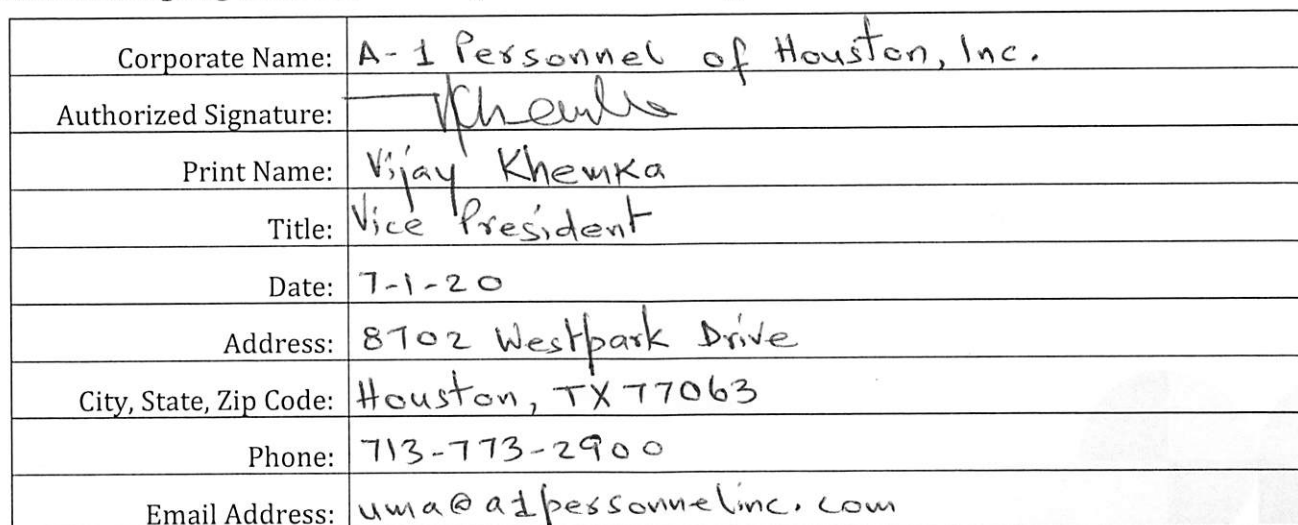 Corporate Name: A-1 Personnel of Houston, Inc.
Authorized Signature: VKhemka
Print Name: Vijay Khemka
Title: Vice President
Date: 7-1-20
Address: 8702 Westpark Drive
City, State, Zip Code: Houston, TX 77063
Phone: 713-773-2900
Email Address: uma@a1personnelinc.com